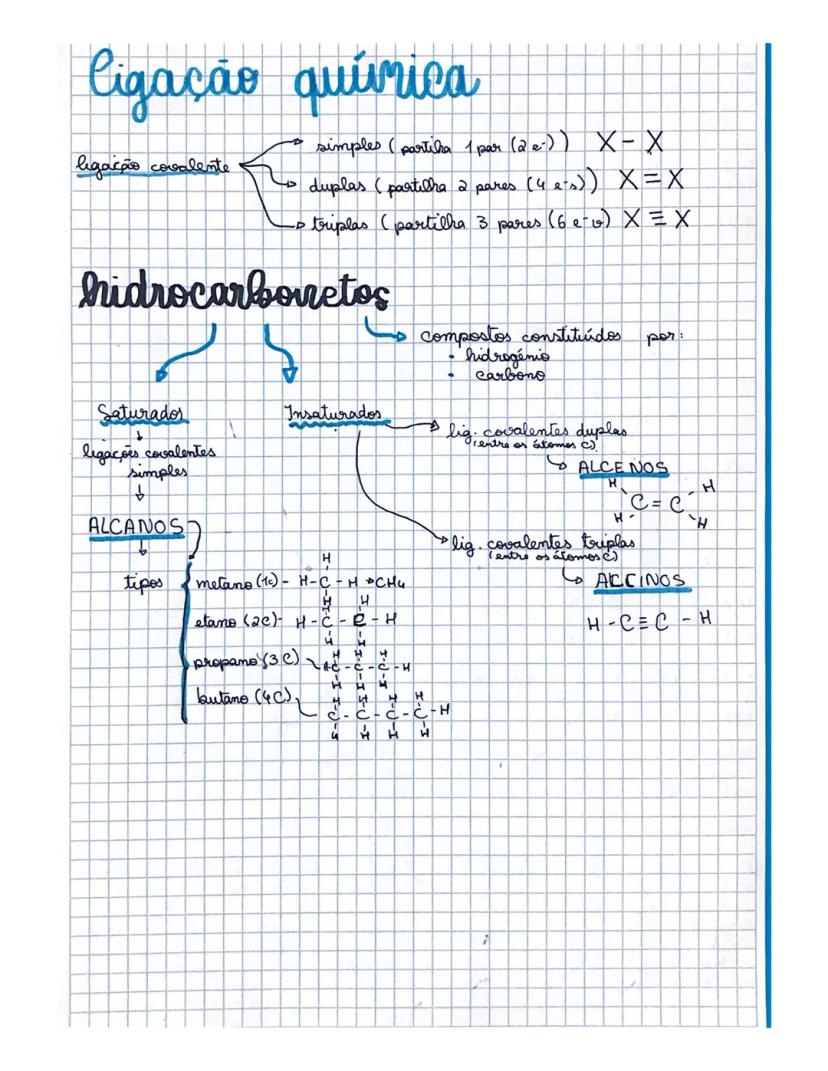 ligação química
ligação covalente
simples (partilha 1 par (2 e-)) X - X
duplas (partilha 2 pares (4 e-s)) X = X
triplas (partilha 3 pares (6 e-s) X ≡ X
hidrocarbonetos
compostos constituídos por:
• hidrogénio
• carbono
Saturados
ligações covalentes
simples
ALCANOS
tipos
Insaturados
lig. covalentes duplas
(entre os átomos C)
ALCENOS
H H
C = C
H H
lig. covalentes triplas
(entre os átomos C)
ALCINOS
H - C ≡ C - H
H
metano (1C) - H - C - H → CH4
H
H H
etano (2C) - H - C - C - H
H H
H H H
propano (3C) HC - C - C - H
H H H
H H H H
butano (4C) C - C - C - C - H
H H H H